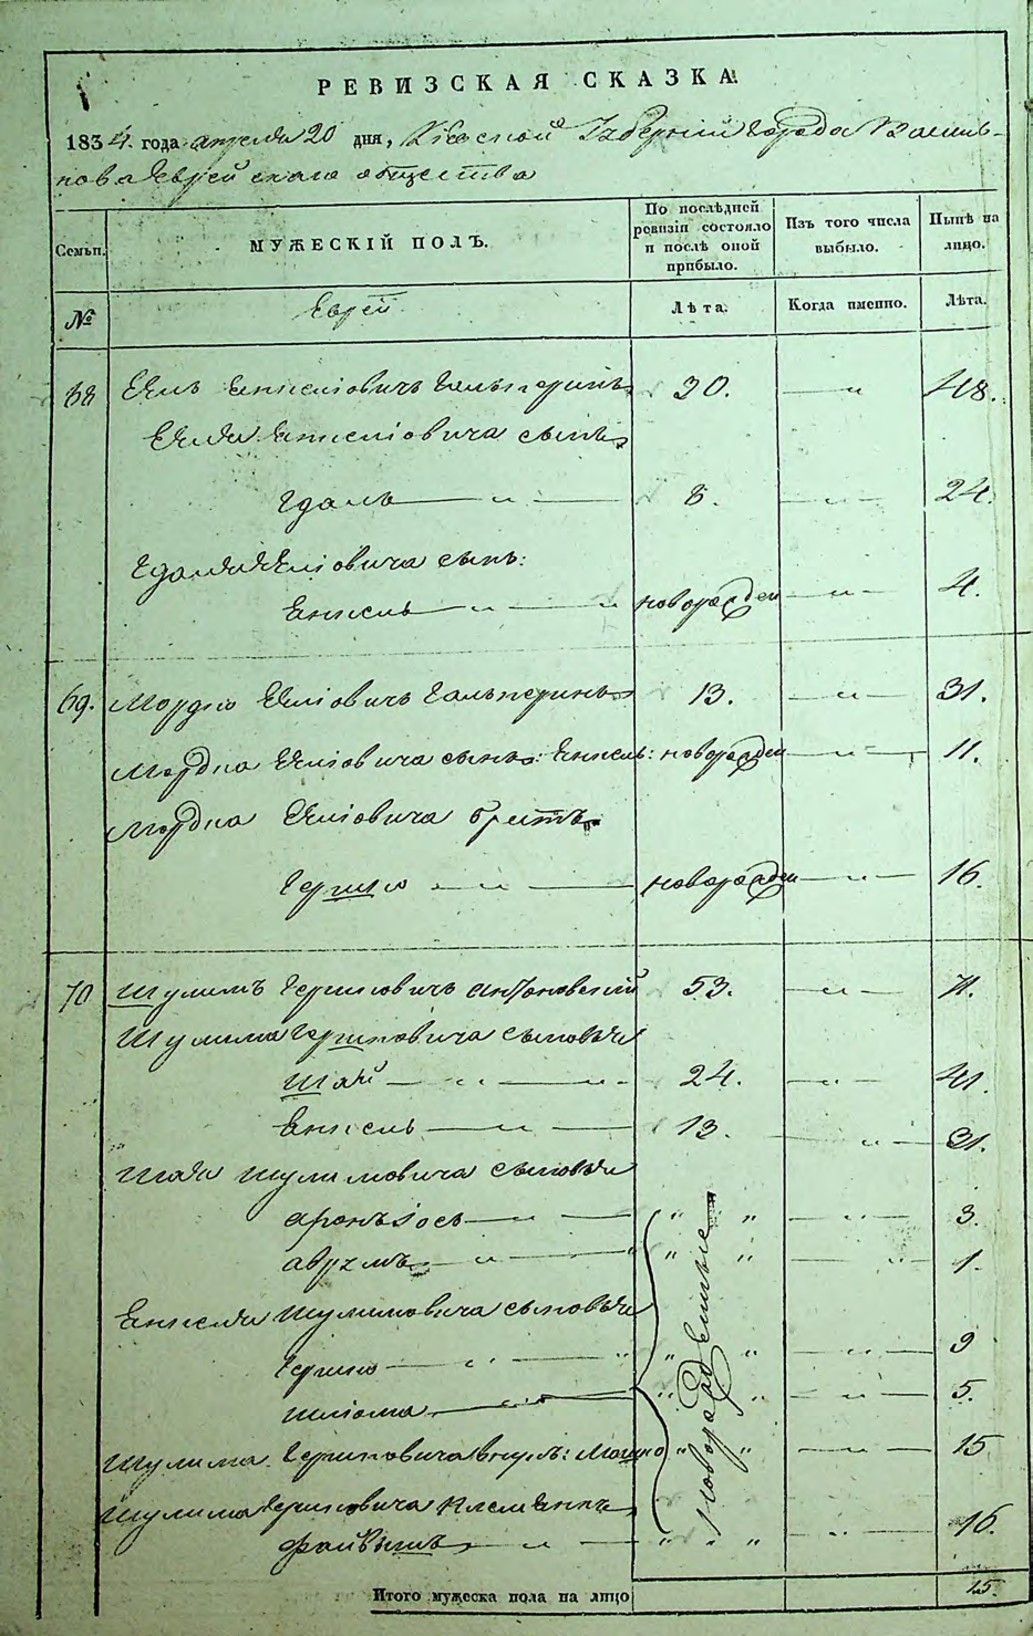 РЕВИЗСКАЯ СКАЗКА.
1834. года апреля 20 дня, Кіевской Губерніи города Василь-
кова Еврейскаго общества
Семьи. МУЖЕСКІЙ ПОЛЪ. По послѣдней ревизіи состояло и послѣ оной прибыло. Изъ того числа выбыло. Нынѣ на лицо.
№ Еврей Лѣта. Когда именно. Лѣта.
68 Елъ Янкеліовичъ Гальперинъ 30. — „ 48.
Еля Янкеліовича сынъ
Гдаль — „ — 8. — „ — 24.
Гдаля Еліовича сынъ:
Янкель — „ — „ новорожден — „ — 4.
69. Мордко Еліовичъ Гальперинъ 13. — „ — 31.
Мордка Еліовича сынъ: Янкель: новорожден — „ — 11.
Мордка Еліовича братъ
Гершко — „ — новорожден — „ — 16.
70 Шулимъ Гершковичъ 53. — „ — 71.
Шулима Гершковича сыновья
Шай — „ — „ - 24. — „ — 41.
Янкель — „ — 13. — „ — 31.
Шаи Шулимовича сыновья
Аронъ Іось — „ — „ „ — „ — 3.
Аврумъ — „ — „ „ „ — „ 1.
Янкеля Шулимовича сыновья
Гершко — „ — „ „ „ — „ — 9
Шліома — „ „ — „ — 5.
новорожденные
Шулима Гершковича внукъ: Мошко „ „ — „ — 15
Шулима Гершковича племянникъ
Файвишъ — „ — „ „ „ — „ — 16.
Итого мужеска пола на лицо 15.